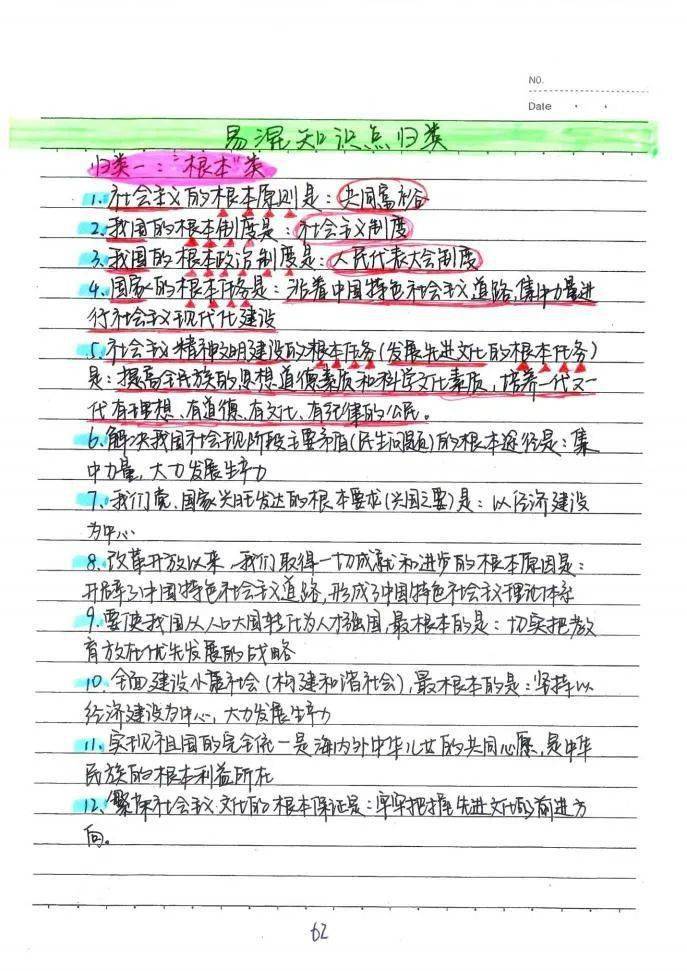 NO.
Date
易混知识点归类
归类一："根本"类
1.社会主义的根本原则是：共同富裕
2.我国的根本制度是：社会主义制度
3.我国的根本政治制度是：人民代表大会制度
4.国家的根本任务是：沿着中国特色社会主义道路,集中力量进
行社会主义现代化建设
5.社会主义精神文明建设的根本任务(发展先进文化的根本任务)
是：提高全民族的思想道德素质和科学文化素质，培养一代又一
代有理想、有道德、有文化、有纪律的公民。
6.解决我国社会现阶段主要矛盾(民生问题)的根本途径是：集
中力量,大力发展生产力
7.我们党、国家兴旺发达的根本要求(兴国之要)是：以经济建设
为中心
8.改革开放以来,我们取得一切成就和进步的根本原因是：
开辟了中国特色社会主义道路,形成了中国特色社会主义理论体系
9.要使我国从人口大国转化为人才强国,最根本的是：切实把教
育放在优先发展的战略
10.全面建设小康社会(构建和谐社会),最根本的是：坚持以
经济建设为中心,大力发展生产力
11.实现祖国的完全统一是海内外中华儿女的共同心愿,是中华
民族的根本利益所在
12.繁荣社会主义文化的根本保证是：牢牢把握先进文化的前进方
向。
62